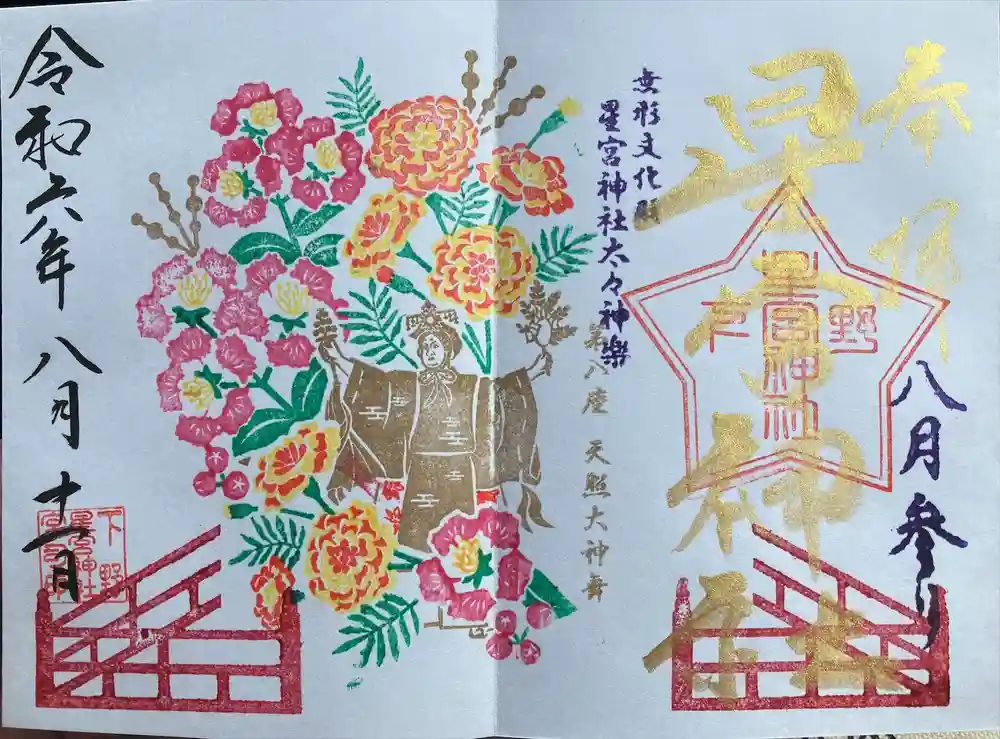 奉拝
星宮神社
八月参り
下野
星宮神社
無形文化財
星宮神社太々神楽
第八座 天照大神舞
令和六年 八月 十一日
下野
星宮神社